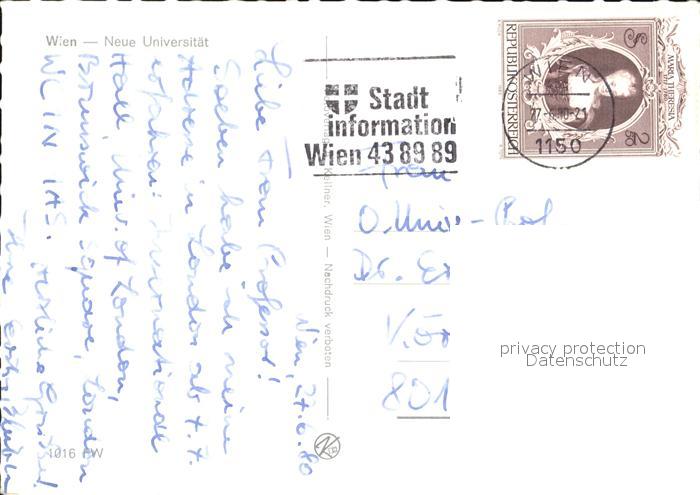 Wien — Neue Universität
Stadt
information
Wien 43 89 89
1150
REPUBLIK ÖSTERREICH
MARIA THERESIA
S 2.50
Kellner, Wien — Nachdruck verboten
Wien, 27.6.80
Liebe Frau Professor!
Soeben habe ich meine
Adresse in London ab 4.7.
erfahren: International
Hall Univ. of London,
Brunswick Square, London
WC1N 1AS. Herzliche Grüße!
Ihre
Frau
O. Univ.-Prof
Dr.
801
privacy protection
Datenschutz
1016 PW